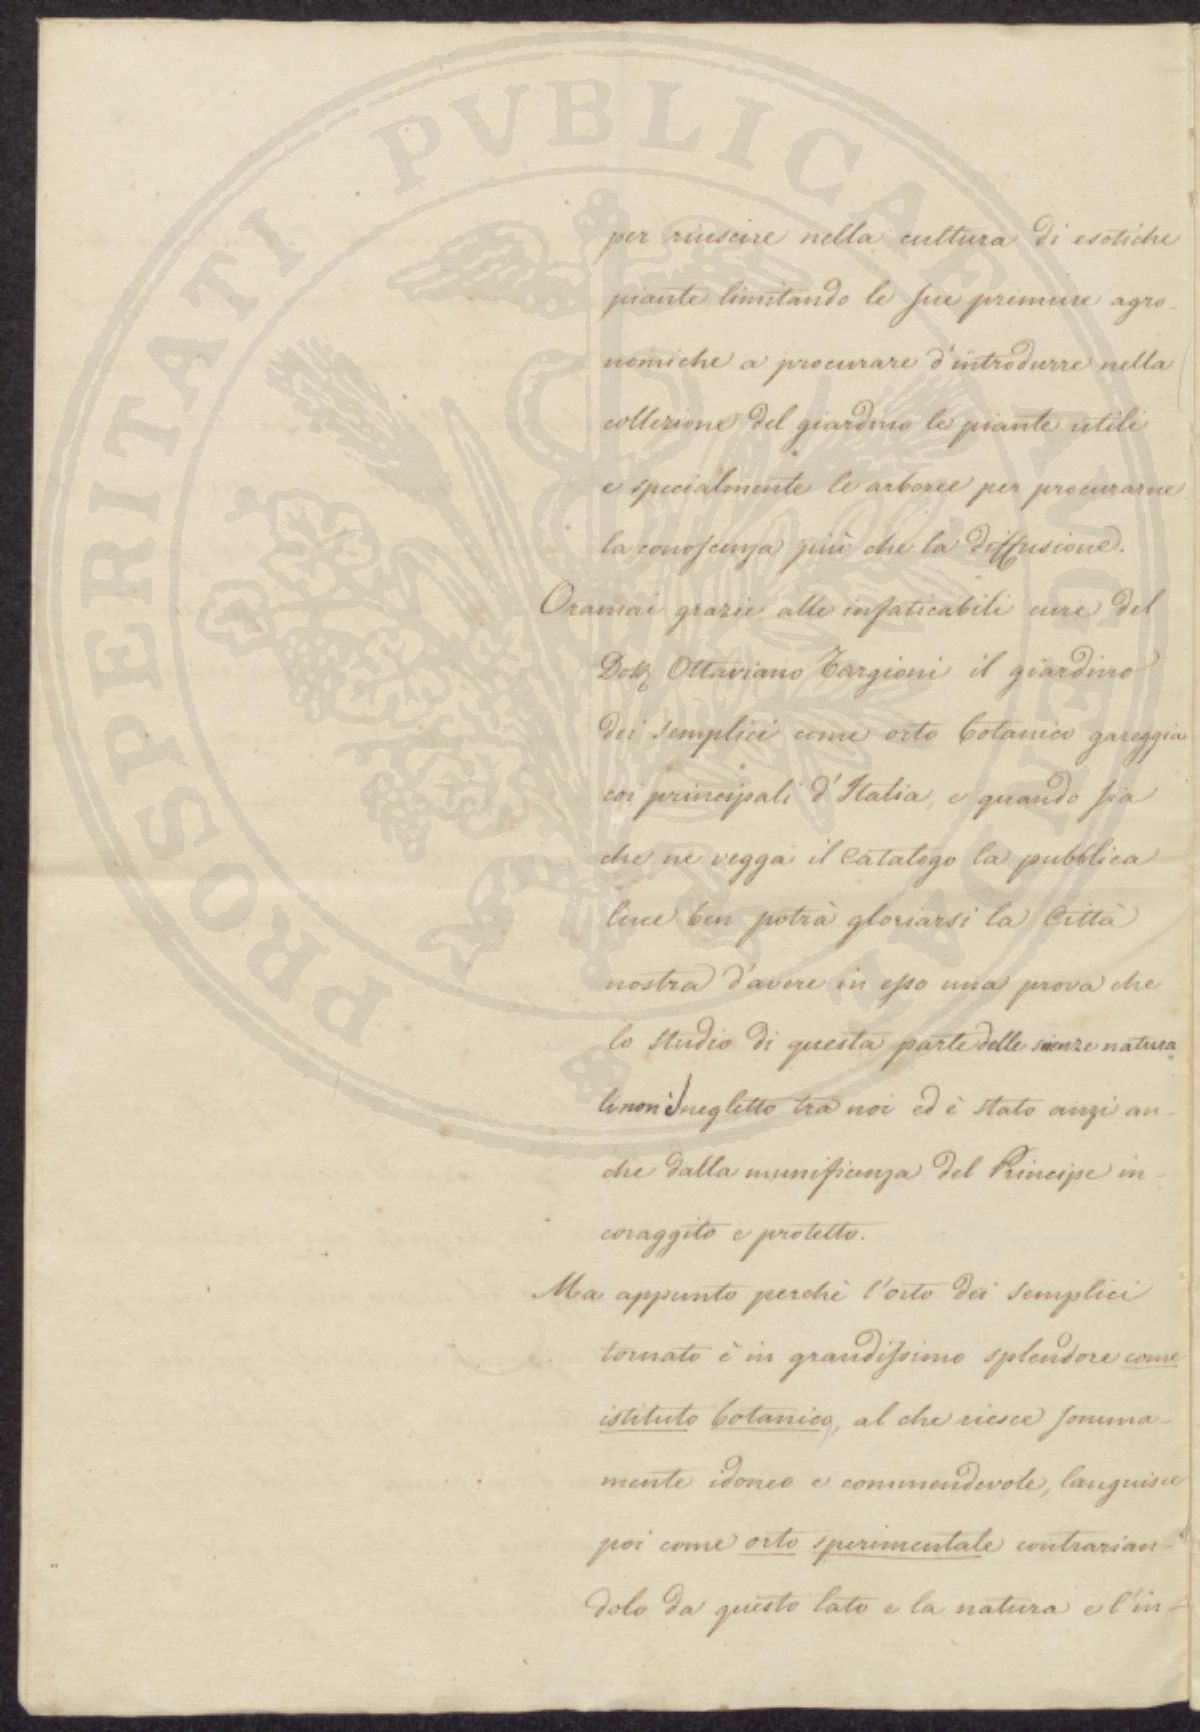 PROSPERITATI PVBLICAE AVGENDAE
per riuscire nella cultura di esotiche
piante limitando le sue premure agro-
nomiche a procurare d'introdurre nella
collezione del giardino le piante utili
e specialmente le arboree per procurarne
la conoscenza più che la diffusione.
Oramai grazie alle infaticabili cure del
Dott Ottaviano Targioni il giardino
dei semplici come orto botanico gareggia
coi principali d'Italia, e quando sia
che ne vegga il Catalogo la pubblica
luce ben potrà gloriarsi la Città
nostra d'avere in esso una prova che
lo studio di questa parte delle scienze natura
li non è negletto tra noi ed è stato anzi an-
che dalla munificenza del Principe in-
coraggito e protetto.
Ma appunto perchè l'orto dei semplici
tornato è in grandissimo splendore come
istituto botanico, al che riesce somma-
mente idoneo e commendevole, languisce
poi come orto sperimentale contrarian-
dolo da questo lato e la natura e l'in-